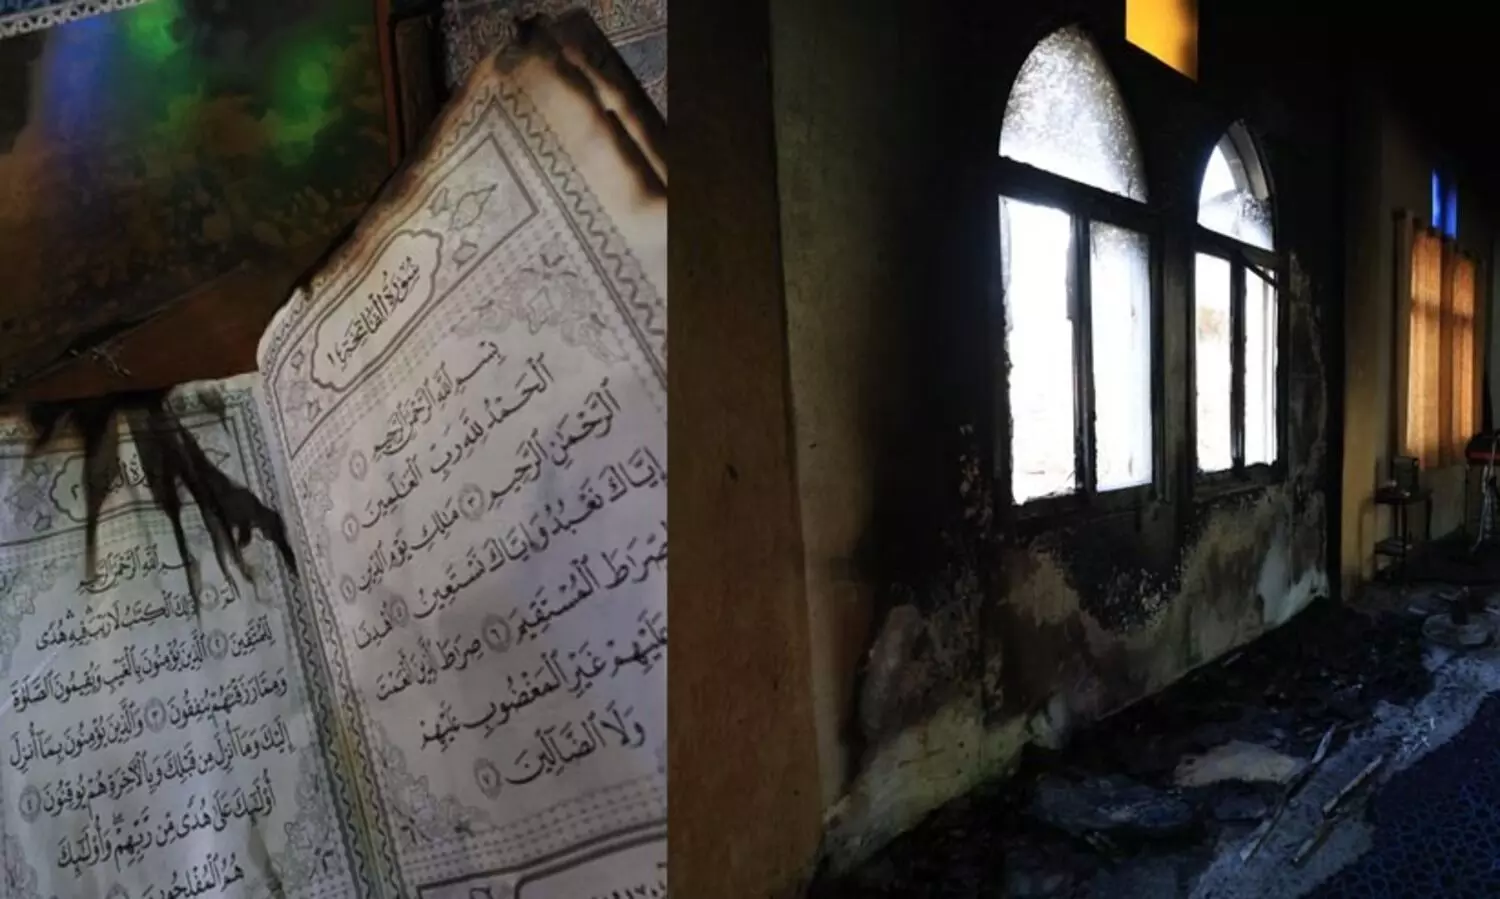 سُورَةُ الفَاتِحَةِ ١
بِسْمِ ٱللَّهِ ٱلرَّحْمَٰنِ ٱلرَّحِيمِ ١
ٱلْحَمْدُ لِلَّهِ رَبِّ ٱلْعَٰلَمِينَ ٢
ٱلرَّحْمَٰنِ ٱلرَّحِيمِ ٣ مَٰلِكِ يَوْمِ ٱلدِّينِ ٤
إِيَّاكَ نَعْبُدُ وَإِيَّاكَ نَسْتَعِينُ ٥ ٱهْدِنَا
ٱلصِّرَٰطَ ٱلْمُسْتَقِيمَ ٦ صِرَٰطَ ٱلَّذِينَ أَنْعَمْتَ
عَلَيْهِمْ غَيْرِ ٱلْمَغْضُوبِ عَلَيْهِمْ
وَلَا ٱلضَّآلِّينَ ٧
بِسْمِ ٱللَّهِ ٱلرَّحْمَٰنِ ٱلرَّحِيمِ
الٓمٓ ١ ذَٰلِكَ ٱلْكِتَٰبُ لَا رَيْبَ فِيهِ هُدًى
لِّلْمُتَّقِينَ ٢ ٱلَّذِينَ يُؤْمِنُونَ بِٱلْغَيْبِ وَيُقِيمُونَ ٱلصَّلَوٰةَ
وَمِمَّا رَزَقْنَٰهُمْ يُنفِقُونَ ٣ وَٱلَّذِينَ يُؤْمِنُونَ بِمَآ أُنزِلَ
إِلَيْكَ وَمَآ أُنزِلَ مِن قَبْلِكَ وَبِٱلْءَاخِرَةِ هُمْ يُوقِنُونَ ٤
أُو۟لَٰٓئِكَ عَلَىٰ هُدًى مِّن رَّبِّهِمْ وَأُو۟لَٰٓئِكَ
هُمُ ٱلْمُفْلِحُونَ